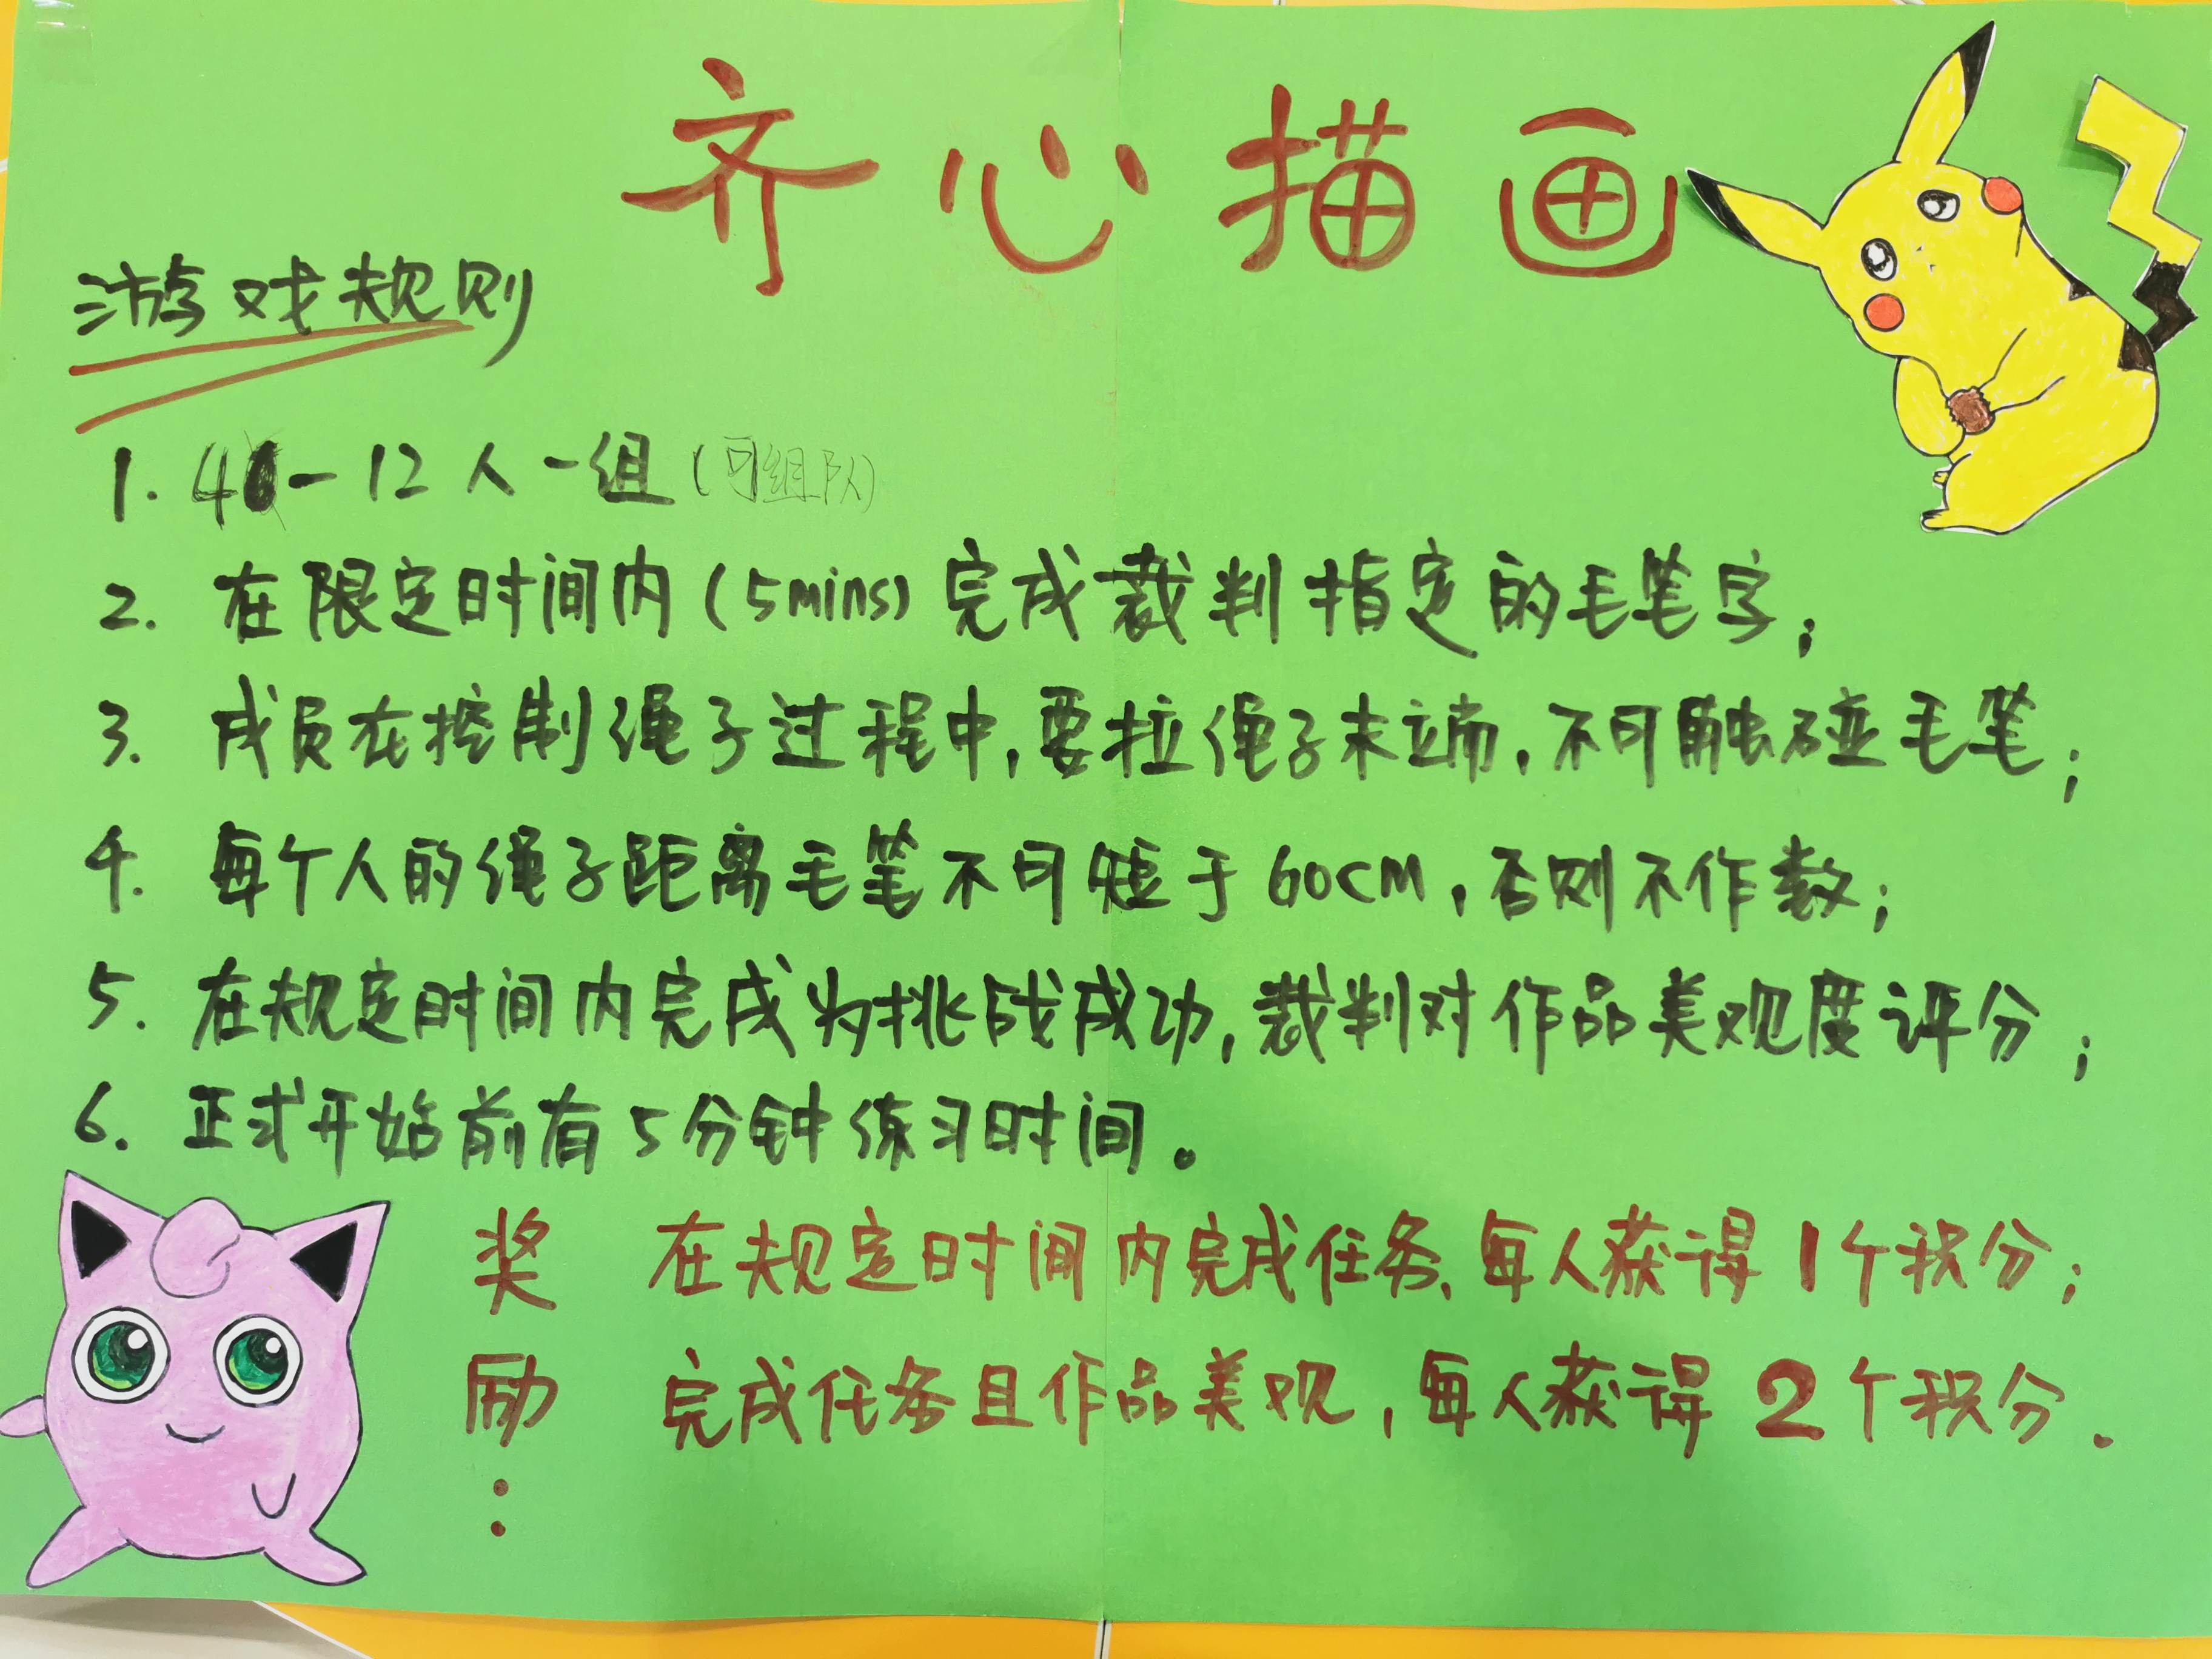 齐心描画
游戏规则
1. 4-12人一组(可组队)
2. 在限定时间内(5mins)完成裁判指定的毛笔字;
3. 成员在控制绳子过程中,要拉绳子末端,不可触碰毛笔;
4. 每个人的绳子距离毛笔不可短于60CM,否则不作数;
5. 在规定时间内完成为挑战成功,裁判对作品美观度评分;
6. 正式开始前有5分钟练习时间。
奖励:
在规定时间内完成任务,每人获得1个积分;
完成任务且作品美观,每人获得2个积分.